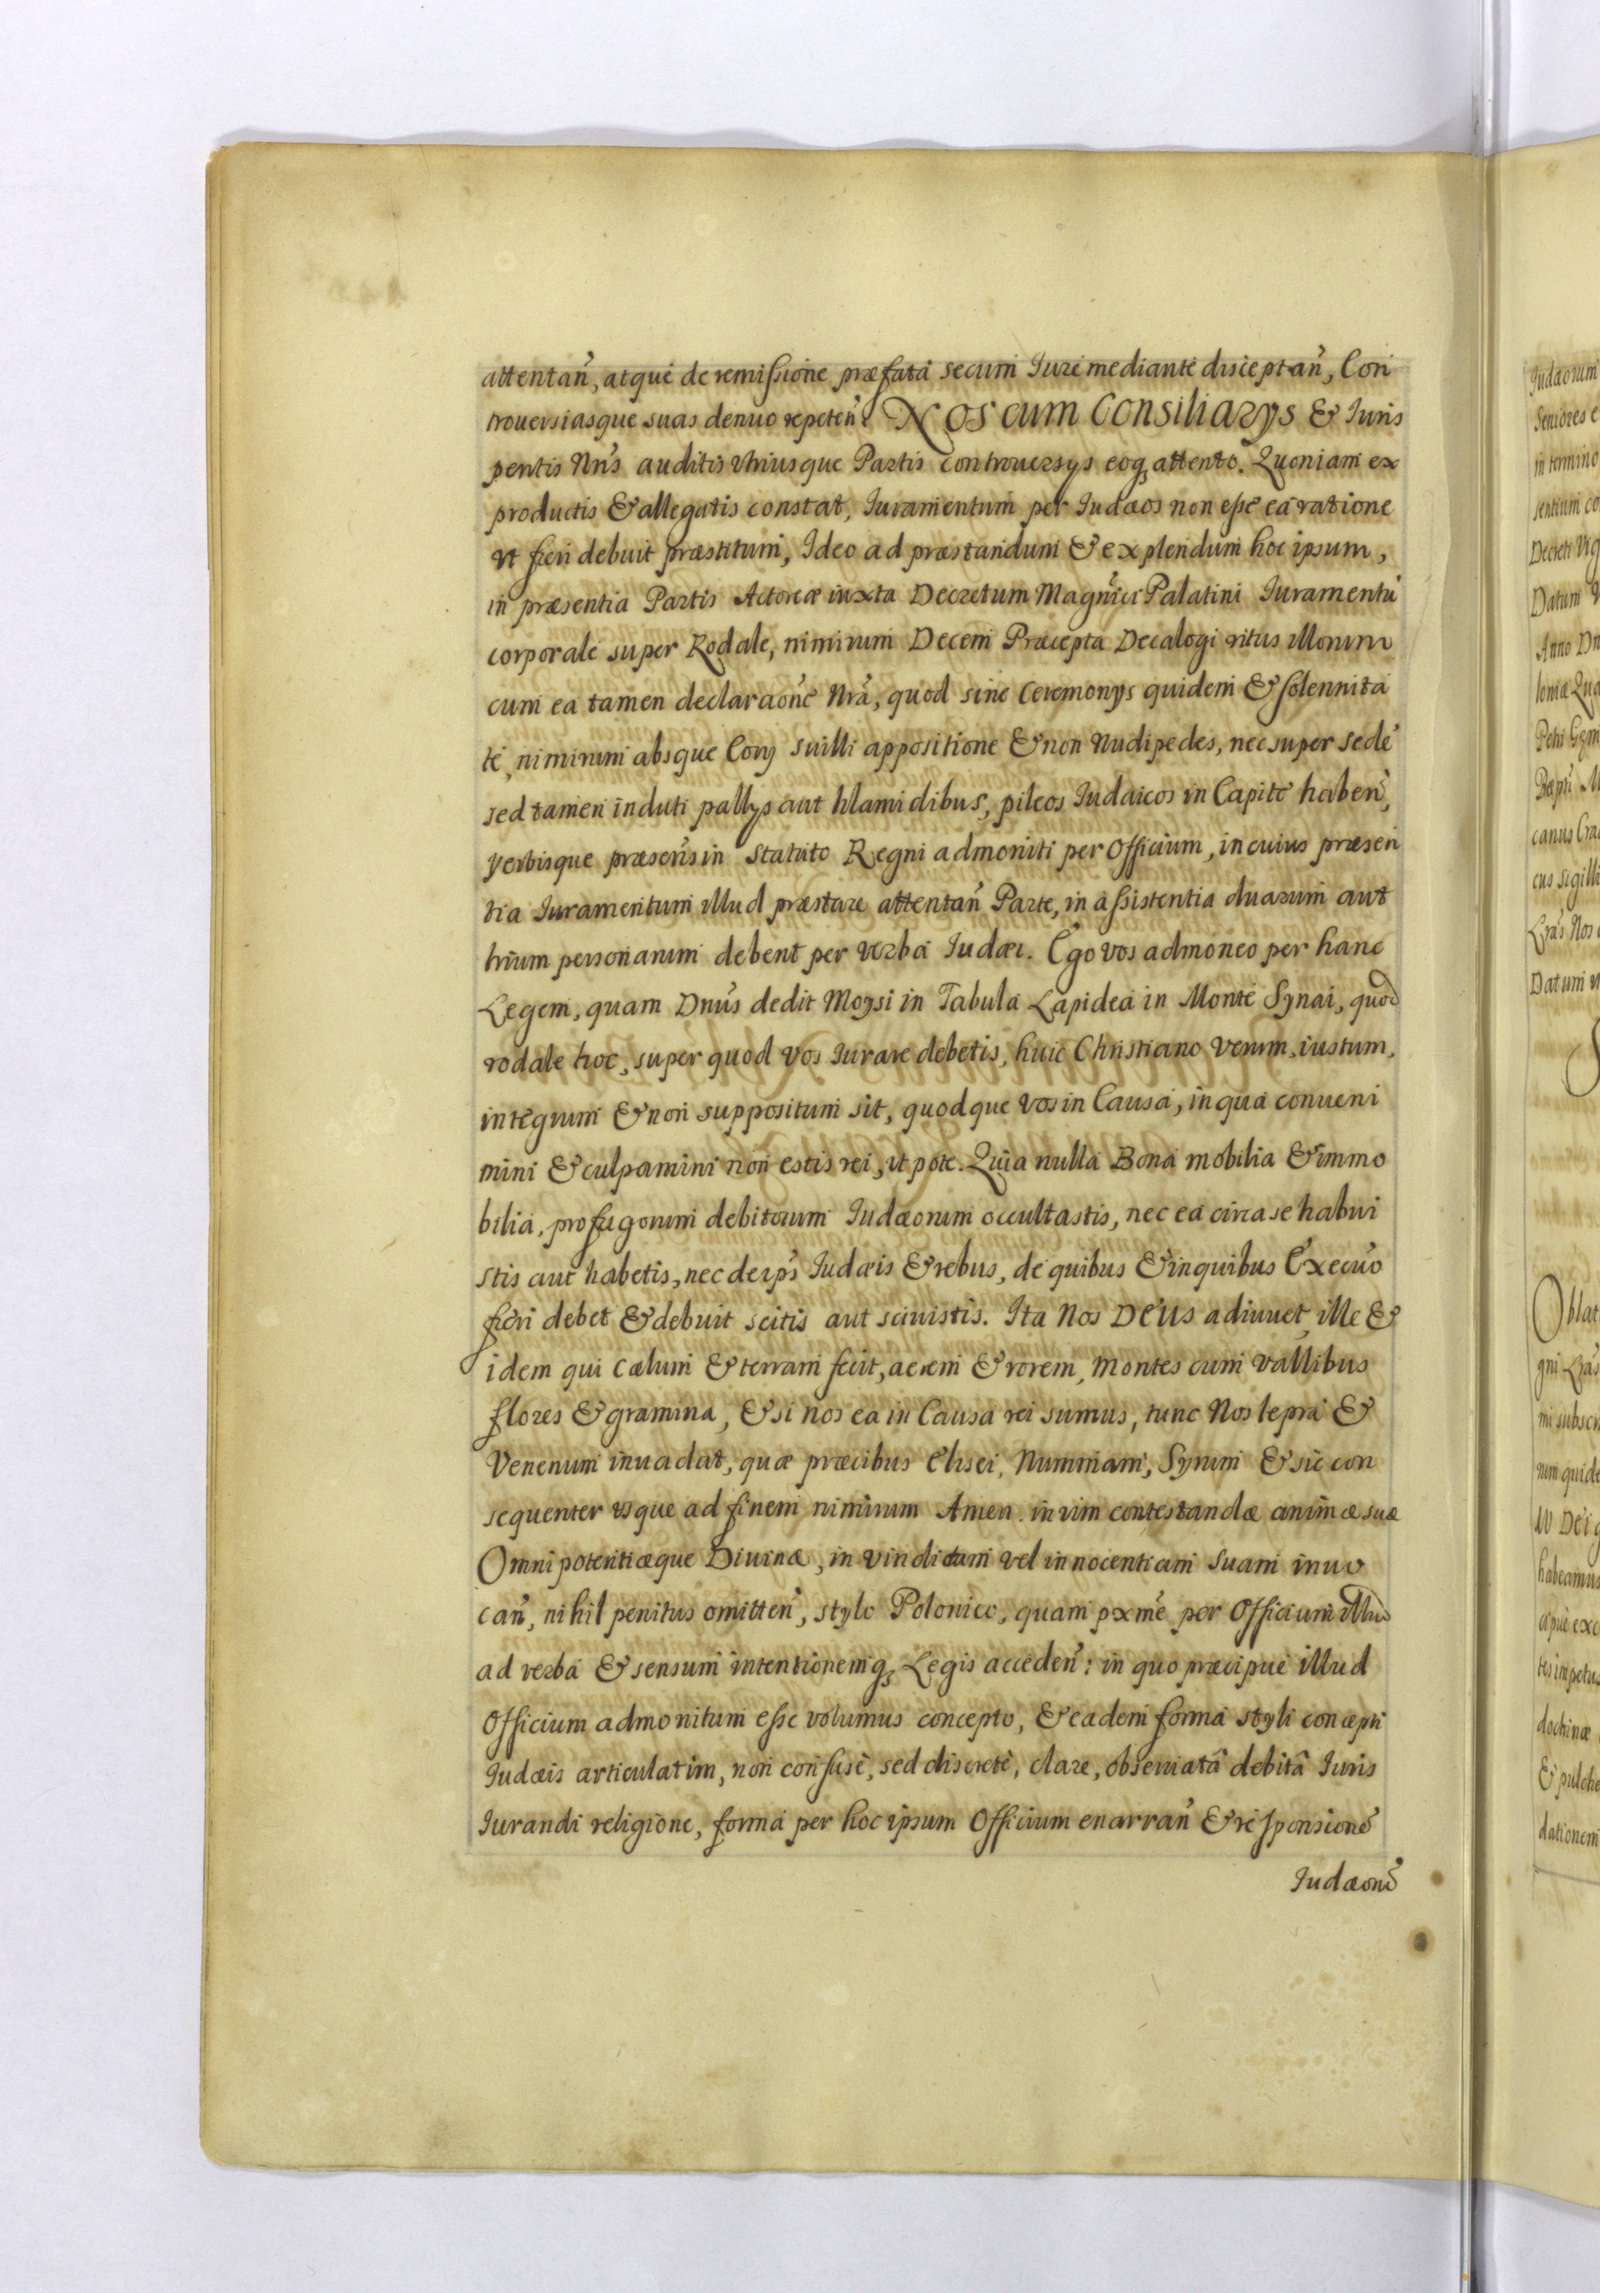 attentan̄, atque de remissione præfata secum Iure mediante disceptan̄, Con
trouersiasque suas denuo repeten̄. Nos cum Consiliarys & Iuris
peritis Nr̄is auditis vtriusque Partis controuersys eoq₃ attento. Quoniam ex
productis & allegatis constat, Iuramentum per Iudæos non esse ea ratione
vt fieri debuit præstitum, Ideo ad præstandum & explendum hoc ipsum,
in præsentia Partis Actoreæ iuxta Decretum Magn̄ici Palatini Iuramentū
corporale super Rodale, nimirum Decem Præcepta Decalogi ritus illorum
cum ea tamen declaraōne Nrā, quod sine Ceremonys quidem & solennita
te, nimirum absque Cory suilli appositione & non Nudipedes, nec super sede
sed tamen induti pallys aut hlamidibus, pileos Iudaicos in Capite haben̄,
verbisque præsen̄s in Statuto Regni admoniti per Officium, in cuius præsen
tia Iuramentum illud præstare attentan̄ Parte, in assistentia duarum aut
trium personarum debent per verba Iudæi. Ego vos admoneo per hanc
Legem, quam Dn̄us dedit Moysi in Tabula Lapidea in Monte Synai, quod
rodale hoc, super quod vos Iurare debetis, huic Christiano verum, iustum,
integrum & non suppositum sit, quodque vos in Causa, in qua conueni
mini & culpamini non estis rei, ut pote. Quia nulla Bona mobilia & immo
bilia, profugorum debitorum Iudæorum occultastis, nec ea circa se habui
stis aut habetis, nec de ip̄s Iudæis & rebus, de quibus & in quibus Execuō
fieri debet & debuit scitis aut sciuistis. Ita Nos Deus adiuuet, ille &
idem qui cælum & terram fecit, aerem & rorem, montes cum vallibus
flores & gramina, & si nos ea in Causa rei sumus, tunc Nos lepra &
Venenum inuadat, quæ præcibus Elisei, Nummam, Syrum & sic con
sequenter vsque ad finem nimirum Amen. in vim contestandæ animæ suæ
Omnipotentiæque Diuinæ, in vindictam vel innocentiam suam inuo
can̄, nihil penitus omitten̄, stylo Polonico, quam pxme per Officium illud
ad verba & sensum intentionemq₃ Legis acceden̄: in quo præcipue illud
Officium admonitum esse volumus concepto, & eadem forma styli concepti
Iudæis articulatim, non confusè, sed discretè, clare, obseruatâ debitâ Iuris
Iurandi religione, forma per hoc ipsum Officium enarran̄ & responsione
Iudæorū